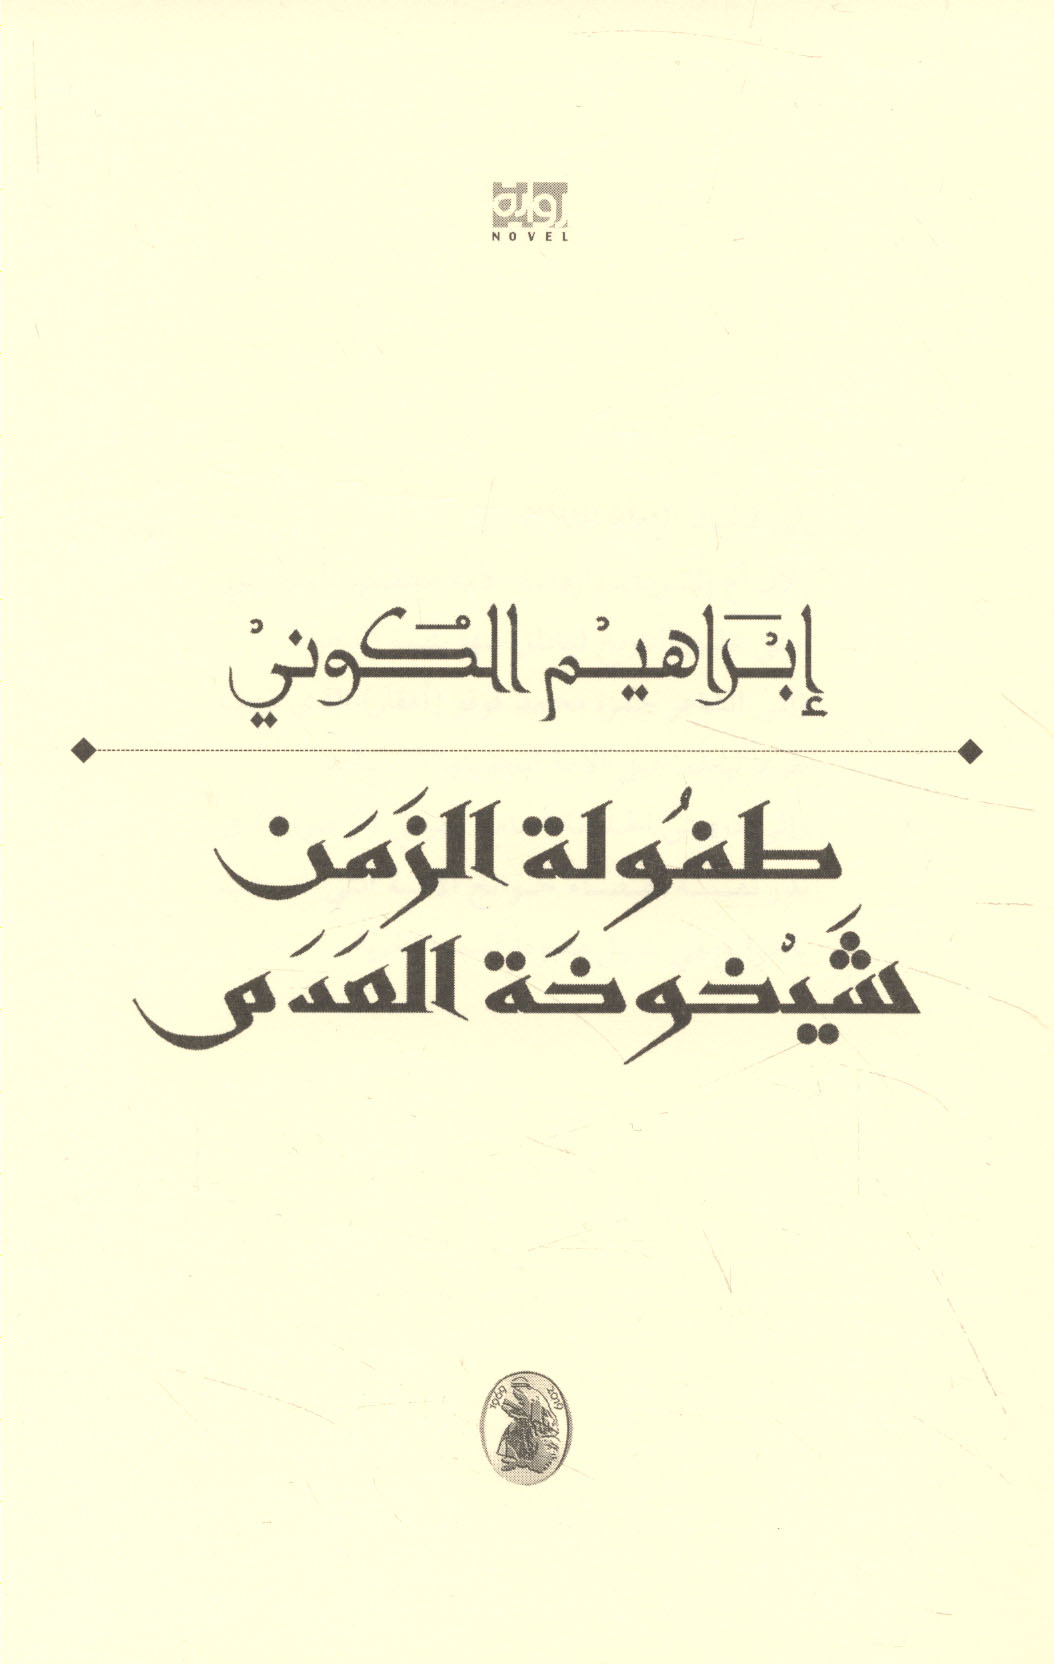 رواية
NOVEL
إبْرَاهيْم الكُونيْ
طفُولة الزَمَن
شَيْخوخَة العَدَم
1969 2019